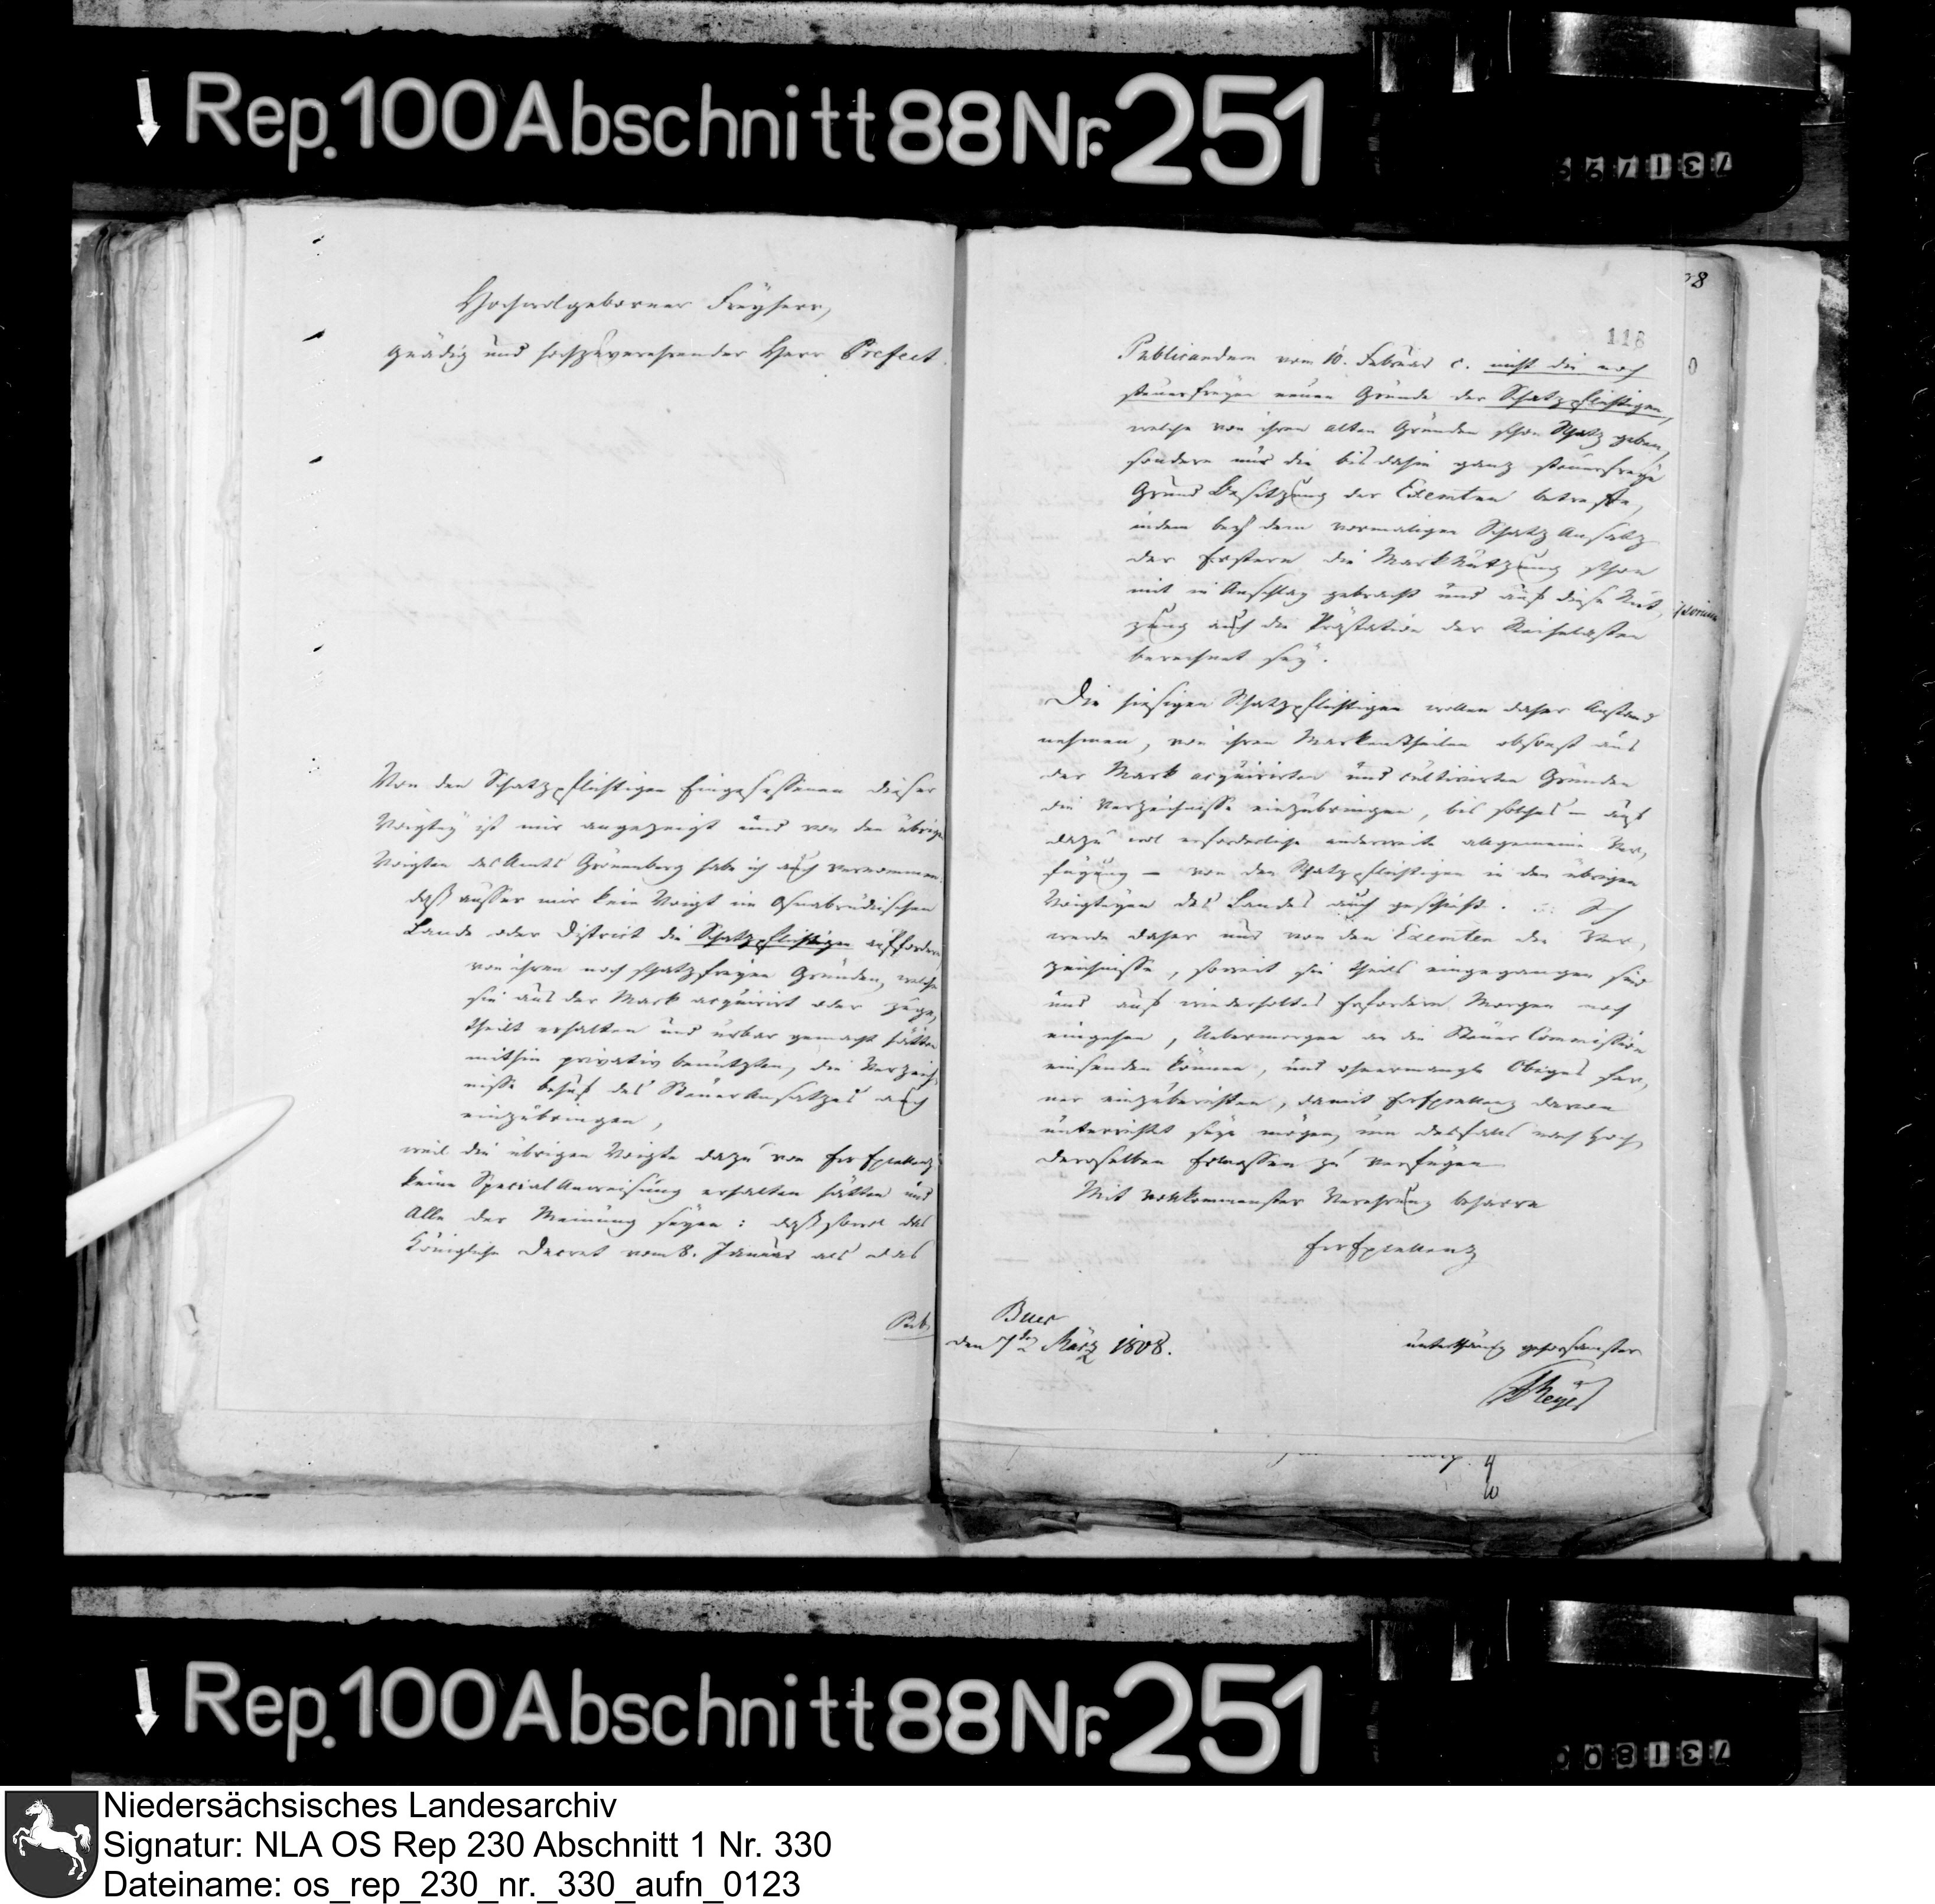 Rep. 100 Abschnitt 88 Nr. 251
731799
Hochwolgeborner Freyherr,
gnädig und hochzuverehrender Herr Prefect.
Von den Schatzpflichtigen Eingesessenen dieser
Voigtey ist mir angezeigt und von den übrigen
Voigten des Amts Grönenberg habe ich auch vernommen
daß ausser mir kein Voigt im Osnabrückschen
Lande oder District die Schatzpflichtigen auffordere
von ihren noch schatzfreyen Gründen, welche
sie aus der Mark acquirirt oder zuge,
theilt erhalten und urbar gemacht hätten
mithin privativ benutzten, die Verzeich,
nisse behuf des SteuerAnsatzes auch
einzubringen,
weil die übrigen Voigte dazu von Ew Excellenz
keine Special Anweisung erhalten hätten und
Alle der Meinung seyen: daß sowol das
Königliche Decret vom 8. Januar als das
Pub,
118
Publicandum vom 10. Februar c. nicht die noch
steuerfreyen neuen Gründe der Schatzpflichtigen,
welche von ihren alten Gründen schon Schatz geben,
sondern nur die bis dahin ganz steuerfreye
Grund Besitzung der Exemten betreffe,
indem bey dem vormaligen Schatz Ansatz
der Erstern die MarkNutzung schon
mit in Anschlag gebracht und auf diese Nut,
zung auch die Prästation der Reihelasten
berechnet sey.
Die hiesigen Schatzpflichtigen wollen daher Anstand
nehmen, von ihren Markentheilen obsonst aus
der Mark acquirirten und cultivirten Gründen
die Verzeichnisse einzubringen, bis solches – auf
dazu wol erforderliche anderweite allgemeine Ver,
fügung – von den Schatzpflichtigen in den übrigen
Voigteyen des Landes auch geschieht. Ich
werde daher nur von den Exemten die Ver,
zeichnisse, soweit sie theils eingegangen sind
und auf wiederholtes Erfordern Morgen noch
eingehen, Uebermorgen an die Steuer Commission
einsenden können, und ohnermangle Obiges fer,
ner einzuberichten, damit Ew Excellenz davon
unterrichtet seyn mögen, um desfalls nach Hoch,
deroselben Ermessen zu verfügen
Mit vollkommenster Verehrung beharre
Ew Excellenz
Buer
den 7ten März 1808.
unterthänig gehorsamster
Meyer
Rep. 100 Abschnitt 88 Nr. 251
731800
Niedersächsisches Landesarchiv
Signatur: NLA OS Rep 230 Abschnitt 1 Nr. 330
Dateiname: os_rep_230_nr._330_aufn_0123